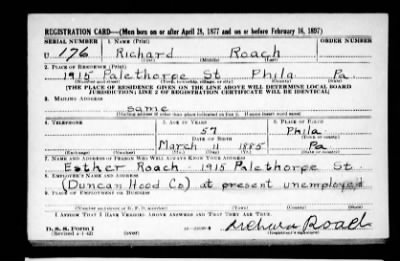 REGISTRATION CARD—(Men born on or after April 28, 1877 and on or before February 16, 1897)
SERIAL NUMBER 1. NAME (Print) ORDER NUMBER
U 176 Richard Roach
(First) (Middle) (Last)
2. PLACE OF RESIDENCE (Print)
1915 Palethorpe St Phila Pa.
(Number and street) (Town, township, village, or city) (County) (State)
[THE PLACE OF RESIDENCE GIVEN ON THE LINE ABOVE WILL DETERMINE LOCAL BOARD
JURISDICTION; LINE 2 OF REGISTRATION CERTIFICATE WILL BE IDENTICAL]
3. MAILING ADDRESS
same
[Mailing address if other than place indicated on line 2. If same insert word same]
4. TELEPHONE 5. AGE IN YEARS 6. PLACE OF BIRTH
57 Phila
DATE OF BIRTH (Town or county)
March 11 1885 Pa
(Exchange) (Number) (Mo.) (Day) (Yr.) (State or country)
7. NAME AND ADDRESS OF PERSON WHO WILL ALWAYS KNOW YOUR ADDRESS
Esther Roach - 1915 Palethorpe St.
8. EMPLOYER'S NAME AND ADDRESS
(Duncan Hood Co) at present unemployed
9. PLACE OF EMPLOYMENT OR BUSINESS
(Number and street or R. F. D. number) (Town) (County) (State)
I AFFIRM THAT I HAVE VERIFIED ABOVE ANSWERS AND THAT THEY ARE TRUE.
D. S. S. Form 1 Richard Roach
(Revised 4-1-42) (over) (Registrant's signature)